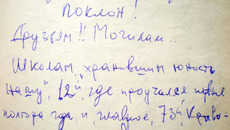 поклон!
Друзьям!! Могилам...
Школам, хранившим юность
нашу", 12й где проучился первые
полтора года и главное, 73й. Краво-